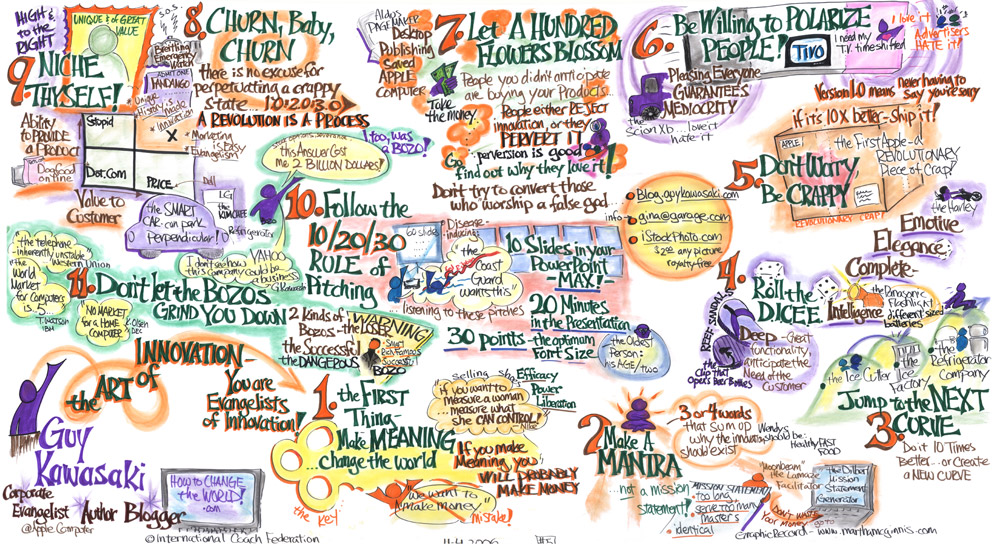 HIGH &
to the
RIGHT
UNIQUE & of GREAT
VALUE
S.O.S.
Breitling
Emergency
Watch
9. NICHE
THYSELF!
ADMIT ONE
FANDANGO
Unique
History is made
*innovation
Ability
to PROVIDE
a PRODUCT
Stupid
X
*Marketing
is Easy
Evangelism
Dogfood
online
Dot.Com
PRICE
Dell
Value to
Customer
the SMART
CAR can park
Perpendicular!
LG
the KIMCHEE
Refrigerator
8. CHURN, BABY,
CHURN
there is no excuse for
perpetuating a crappy
State... 1.0 2.0 3.0
A REVOLUTION is A PROCESS
this Answer Cost
me 2 BILLION DOLLARS!
I too, was
a BOZO!
BOZO
YAHOO
I don't see how
this company could be
a business
G. Kawasaki
Aldo's
PAGEMAKER
Desktop
Publishing
Saved
APPLE
COMPUTER
7. LET A HUNDRED
FLOWERS BLOSSOM
People you didn't anticipate
are buying your Products...
Take
the money
People either REJECT
innovation, or they
PERVERT IT
perversion is good
Go
find out why they love it!
Don't try to convert those
who worship a false god
6. Be Willing to POLARIZE
PEOPLE!
TIVO
I need my
T.V. time shifted
I love it
Advertisers
HATE it!
Pleasing Everyone
GUARANTEES
MEDIOCRITY
the
Scion Xb...love it
hate it
Version 1.0 means never having to
say you're sorry
if it's 10X better-ship it!
5. Don't Worry,
Be CRAPPY
APPLE I
the First Apple-a
REVOLUTIONARY
Piece of Crap!
REVOLUTIONARY CRAP!
info
Blog.guykawasaki.com
gina@garage.com
iStockPhoto.com
$2.00 any picture
royalty-free
the Harley
Emotive
Elegance:
Complete-
Intelligence
the Panasonic
Flashlight
different sized
batteries
4. Roll the
DICEE.
REEF SANDALS
the
Clip that
Opens Beer Bottles
Deep-Great
functionality,
anticipate the
Need of the
Customer
10. Follow the
10/20/30
RULE of
Pitching
60 slides
Disease-
inducing:
"the
Coast
Guard
wants this"
...listening to these pitches
10 Slides in your
PowerPoint
-MAX!-
20 Minutes
in the Presentation
30 points-the optimum
Font Size
the Oldest
Person:
his AGE/two
"the telephone-
inherently unstable"
Western Union
"the
World
Market
for Computers
is 5"
T. Watson
IBM
11. Don't let the BOZOS
GRIND YOU DOWN
NO MARKET
for a HOME
COMPUTER
K. Olsen
DEC
2 Kinds of
Bozos-the LOSER
the Successful
the DANGEROUS
WARNING
Smart
Rich Famous
Successful
BOZO
the ART of
INNOVATION-
You are
Evangelists
of Innovation!
Guy
Kawasaki
Corporate
Evangelist
@Apple Computer
Author Blogger
HOW to CHANGE
the WORLD!
.com
1. the FIRST
Thing-
Make MEANING
...change the world
the key
selling shoes
Efficacy
Power
Liberation
"if you want to
measure a woman
...measure what
she CAN CONTROL!"
-Nike
If you make
Meaning you
WILL PROBABLY
MAKE MONEY
"We want to
make money"
mistake!
2. Make A
MANTRA
...not a mission
statement!
3 or 4 words
that sum up
why the innovation
should exist
Wendy's
should be:
Healthy FAST
FOOD
MISSION STATEMENTS
too long
serve too many
masters
identical
"Moonbeam"
the Lamaze
Facilitator
DON'T WASTE
Your Money-go to
the Dilbert
Mission
Statement
Generator
the Ice Cutter
the
Ice
Factory
the
Refrigerator
Company
Jump to the NEXT
3. CURVE
Do it 10 Times
Better...or Create
a NEW CURVE
GraphicRecord-www.marthamcginnis.com
©International Coach Federation
11-4-2006
#5